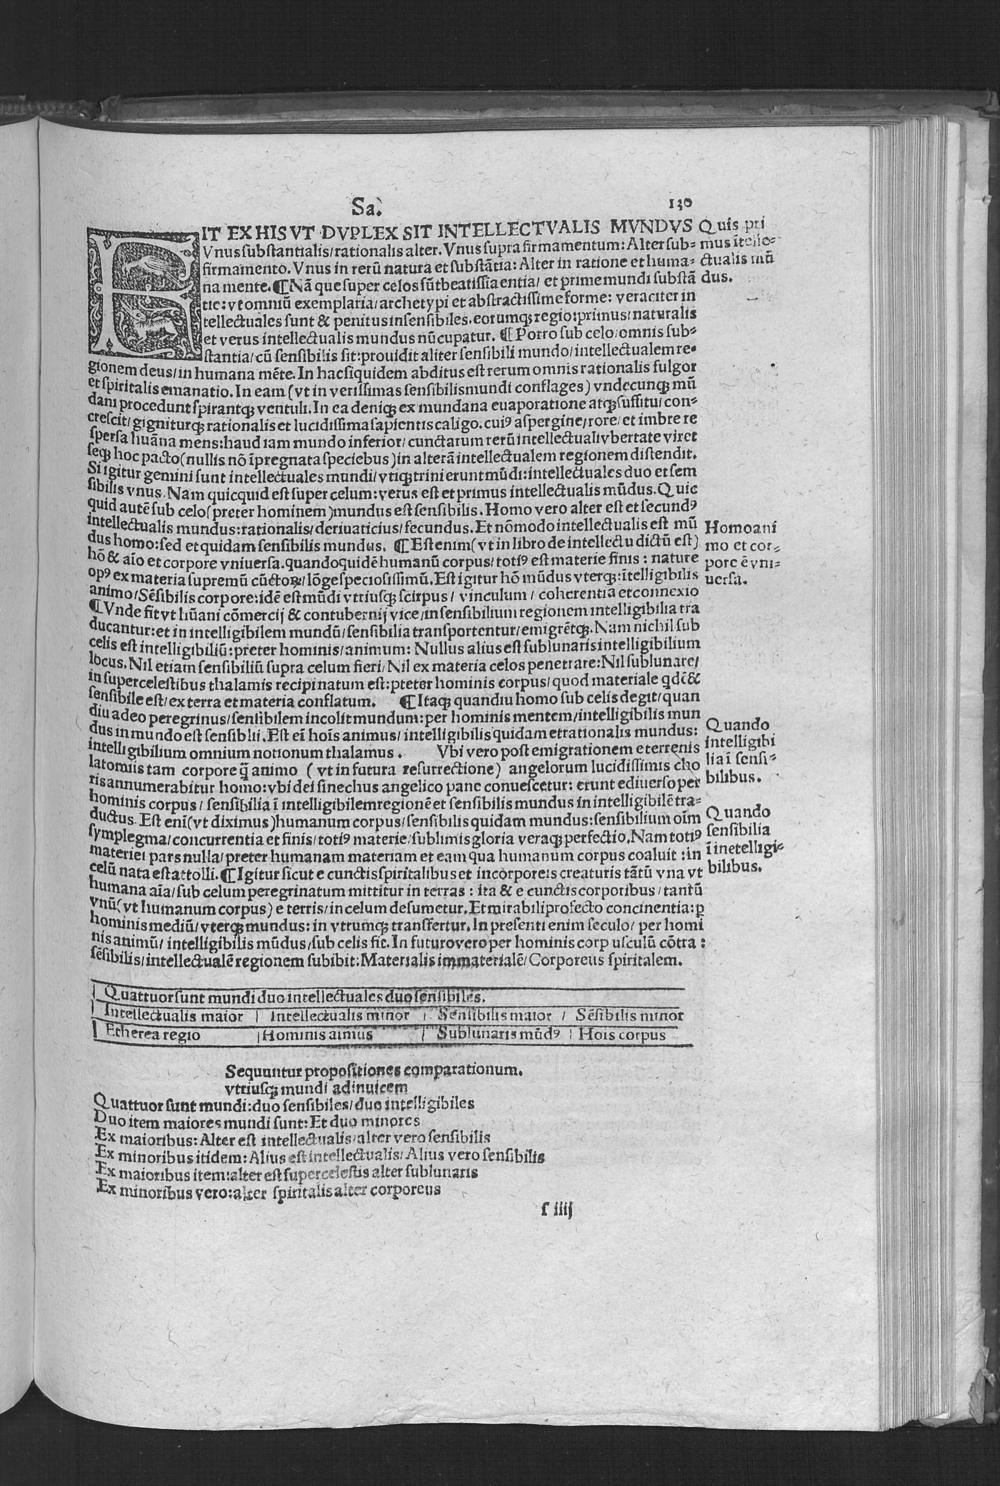 Sa. 130
FIT EX HIS VT DVPLEX SIT INTELLECTVALIS MVNDVS
Vnus substantialis/rationalis alter. Vnus supra firmamentum: Alter sub-
firmamento. Vnus in rerū natura et substātia: Alter in ratione et huma-
na mente. ¶Nā que super celos sūt beatissīa entia/ et prime mundi substā
tie: vt omniū exemplaria/archetypi et abstractissime forme: veraciter in
tellectuales sunt & penitus insensibiles. eorumqꝫ regio: primus/naturalis
et verus intellectualis mundus nūcupatur. ¶Porro sub celo/omnis sub-
stantia/cū sensibilis sit: prouidit aliter sensibili mundo/intellectualem re-
gionem deus/in humana mēte. In hac siquidem abditus est rerum omnis rationalis fulgor
et spiritalis emanatio. In eam (vt in verissimas sensibilis mundi conflages) vndecunqꝫ mū
dani procedunt spirantqꝫ ventuli. In ea deniqꝫ ex mundana euaporatione atqꝫ suffitu/con-
crescit/gigniturqꝫ rationalis et lucidissima sapientis caligo. cuiꝰ aspergine/rore/et imbre re
spersa huāna mens: haud iam mundo inferior/cunctarum rerū intellectuali vbertate viret
seqꝫ hoc pacto (nullis nō īpregnata speciebus) in alterā intellectualem regionem distendit.
Si igitur gemini sunt intellectuales mundi/vtiqꝫ trini erunt mūdi: intellectuales duo et sen
sibilis vnus. Nam quicquid est super celum: verus est et primus intellectualis mūdus. Quic
quid autē sub celo (preter hominem) mundus est sensibilis. Homo vero alter est et secundꝰ
intellectualis mundus: rationalis/deriuaticius/fecundus. Et nō modo intellectualis est mū
dus homo: sed et quidam sensibilis mundus. ¶Est enim (vt in libro de intellectu dictū est)
hō & aīo et corpore vniuersa. quandoquidē humanū corpus/totiꝰ est materie finis: nature
opꝰ ex materia supremū cūctoꝝ/lōge speciosissimū. Est igitur hō mūdus vterqꝫ: ītelligibilis
animo/Sēsibilis corpore: idē est mūdi vtriusqꝫ scirpus/ vinculum/ coherentia et connexio
¶Vnde fit vt hūani cōmercij & contubernij vice/in sensibilium regionem intelligibilia tra
ducantur: et in intelligibilem mundū/sensibilia transportentur/emigrētqꝫ. Nam nichil sub
celis est intelligibiliū: preter hominis/animum: Nullus alius est sublunaris intelligibilium
locus. Nil etiam sensibiliū supra celum fieri/Nil ex materia celos penetrare: Nil sublunare/
in supercelestibus thalamis recipi natum est: preter hominis corpus/quod materiale qdē &
sensibile est/ex terra et materia conflatum. ¶Itaqꝫ quandiu homo sub celis degit/quan
diu adeo peregrinus/sensibilem incolit mundum: per hominis mentem/intelligibilis mun
dus in mundo est sensibili. Est eī hoīs animus/intelligibilis quidam et rationalis mundus:
intelligibilium omnium notionum thalamus. Vbi vero post emigrationem e terrenis
latomiis tam corpore q̄ animo (vt in futura resurrectione) angelorum lucidissimis cho
ris annumerabitur homo: vbi dei sinechus angelico pane conuescetur: erunt ediuerso per
hominis corpus/ sensibilia ī intelligibilem regionē et sensibilis mundus in intelligibilē tra-
ductus. Est enī (vt diximus) humanum corpus/sensibilis quidam mundus: sensibilium oīm
symplegma/concurrentia et finis/totiꝰ materie/sublimis gloria veraqꝫ perfectio. Nam totiꝰ
materiei pars nulla/preter humanam materiam et eam qua humanum corpus coaluit: in
celū nata est attolli. ¶Igitur sicut e cunctis spiritalibus et incorporeis creaturis tātū vna vt
humana aīa/sub celum peregrinatum mittitur in terras: ita & e cunctis corporibus/tantū
vnū (vt humanum corpus) e terris/in celum desumetur. Et mirabili profecto concinentia: ꝑ
hominis mediū/vterqꝫ mundus: in vtrumqꝫ transfertur. In presenti enim seculo/per homi
nis animū/intelligibilis mūdus/sub celis fit. In futuro vero per hominis corpusculū cōtra:
sēsibilis/intellectualē regionem subibit: Materialis immaterialē/Corporeus spiritalem.
Quis pri
mus ītelle-
ctualis mū
dus.
Homo ani
mo et cor-
pore ē vni-
uersa.
Quando
intelligibi
lia ī sensi-
bilibus.
Quando
sensibilia
ī inetelligi-
bilibus.
Quattuor sunt mundi duo intellectuales duo sensibiles.
Intellectualis maior | Intellectualis minor | Sensibilis maior | Sēsibilis minor
Etherea regio | Hominis aīmus | Sublunaris mūdꝰ | Hoīs corpus
Sequuntur propositiones comparationum.
vtriusqꝫ mundi adinuicem
Quattuor sunt mundi: duo sensibiles/duo intelligibiles
Duo item maiores mundi sunt: Et duo minores
Ex maioribus: Alter est intellectualis/alter vero sensibilis
Ex minoribus itidem: Alius est intellectualis/Alius vero sensibilis
Ex maioribus item: alter est supercelestis alter sublunaris
Ex minoribus vero: alter spiritalis alter corporeus
s iiij